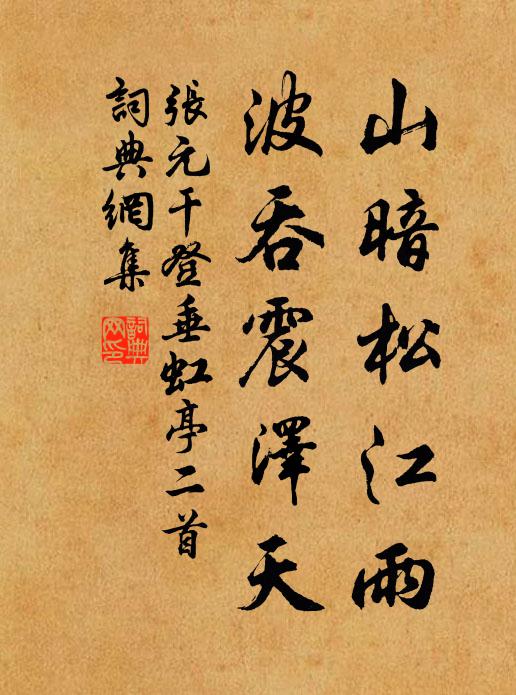 山暗松江雨
波吞震澤天
張元干登垂虹亭二首
詞典網集
詞典網印